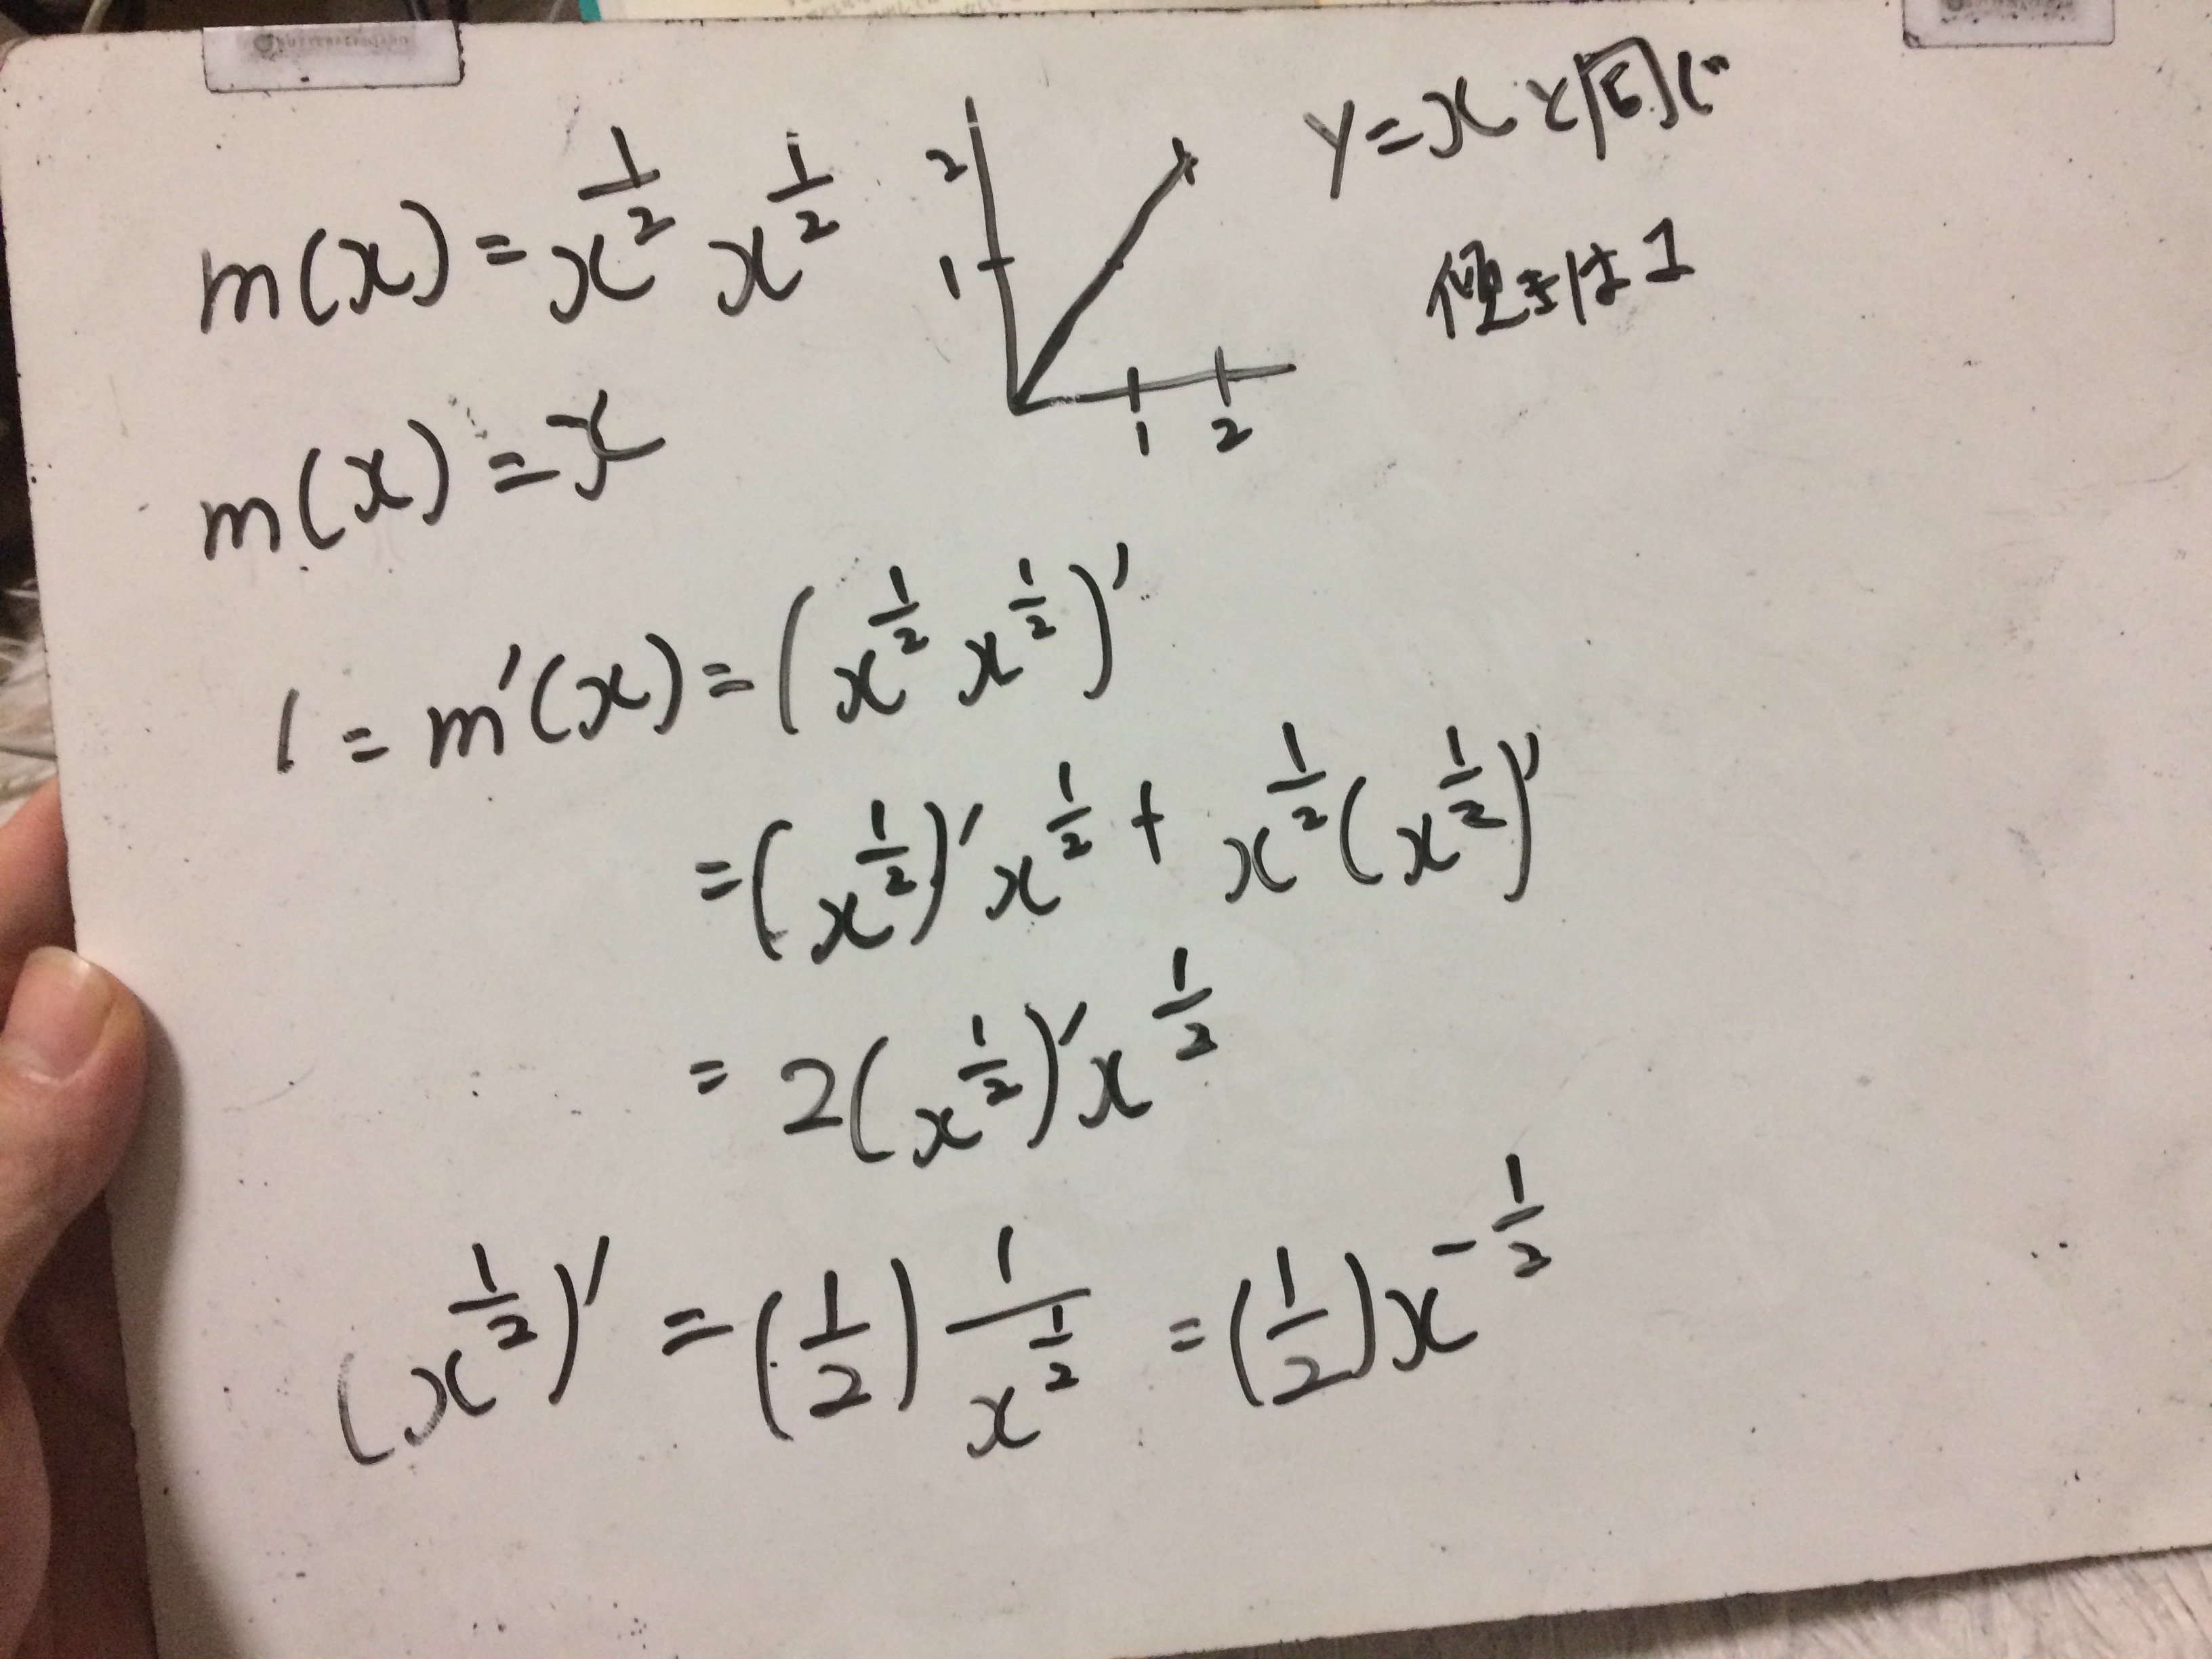 m(x) = x^{1/2} x^{1/2}
2
1
1 2
y = x と同じ
傾きは1
m(x) = x
1 = m'(x) = (x^{1/2} x^{1/2})'
= (x^{1/2})' x^{1/2} + x^{1/2} (x^{1/2})'
= 2(x^{1/2})' x^{1/2}
(x^{1/2})' = (1/2) 1/x^{1/2} = (1/2) x^{-1/2}